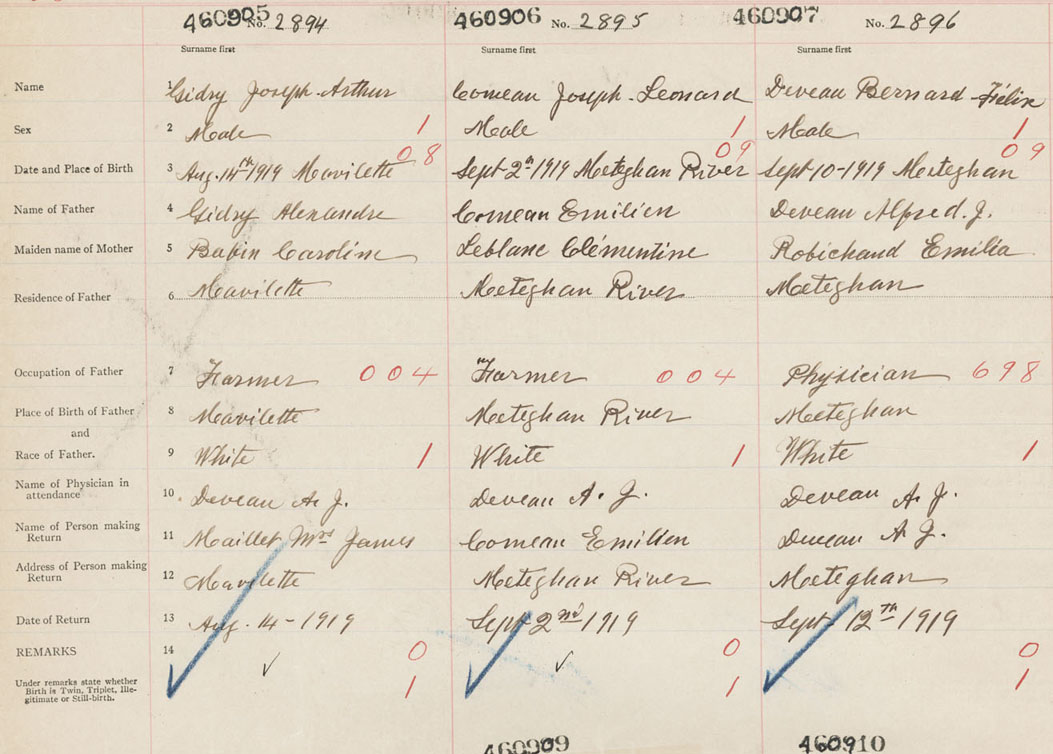 460905 No. 2894 460906 No. 2895 460907 No. 2896
Surname first Surname first Surname first
Name 1 Gidry Joseph Arthur Comeau Joseph-Leonard Deveau Bernard Félix
Sex 2 Male 1 Male 1 Male 1
08 09 09
Date and Place of Birth 3 Aug. 14th 1919 Mavilette Sept 2nd 1919 Meteghan River Sept 10-1919 Meteghan
Name of Father 4 Gidry Alexandre Comeau Emilien Deveau Alfred. J.
Maiden name of Mother 5 Babin Caroline Leblanc Clémentine Robichaud Emilia
Residence of Father 6 Mavilette Meteghan River Meteghan
Occupation of Father 7 Farmer 004 Farmer 004 Physician 698
Place of Birth of Father 8 Mavilette Meteghan River Meteghan
and
Race of Father. 9 White 1 White 1 White 1
Name of Physician in
attendance 10. Deveau A. J. Deveau A. J. Deveau A. J.
Name of Person making
Return 11 Maillet Mrs James Comeau Emilien Deveau A J.
Address of Person making
Return 12 Mavilette Meteghan River Meteghan
Date of Return 13 Aug. 14-1919 Sept 2nd 1919 Sept 12th 1919
REMARKS 14 0 0 0
Under remarks state whether
Birth is Twin, Triplet, Ille-
gitimate or Still-birth. 1 1 1
460909 460910